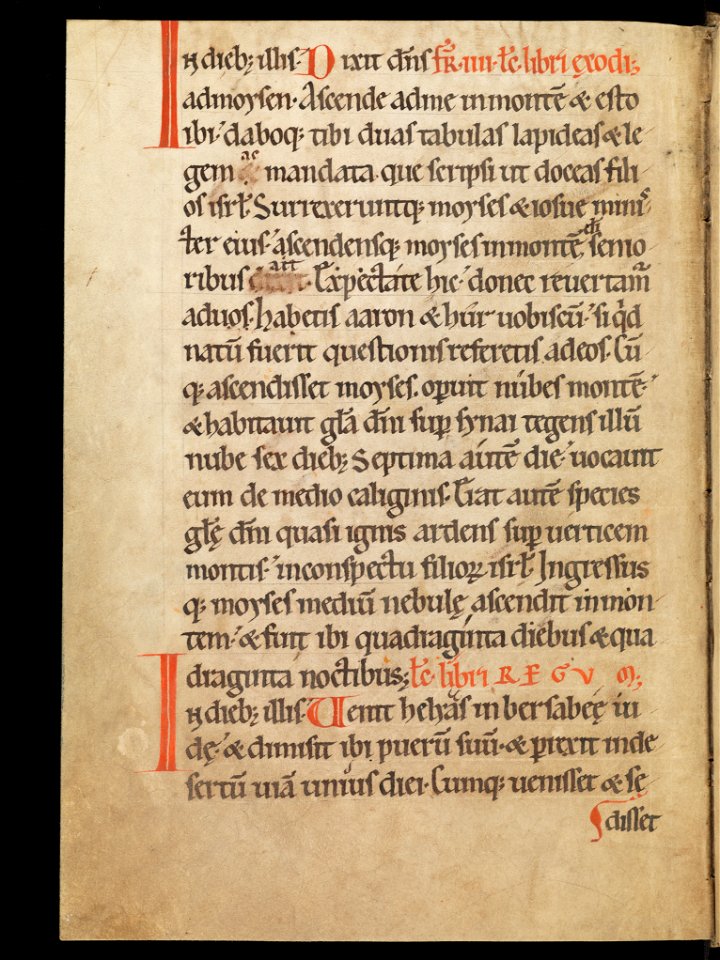 In dieb; illis. Dixit dñs FR̃. IIII. łc̃. libri exodi;
ad moysen. Ascende ad me in montē & esto
ibi. daboq; tibi duas tabulas lapideas & le
gem ac mandata que scripsi ut doceas fili
os isrł. Surrexeruntq; moyses & iosue minis
ter eius. ascendensq; moyses in montē dī senio
ribus ait. Expectate hic. donec revertam̃
ad uos. habetis aaron & húr uobiscū. si qd
natū fuerit questionis referetis ad eos. Cū
q; ascendisset moyses. opuit nubes montē.
& habitauit glā dñi sup synai tegens illū
nube sex dieb; Septima aútē die uocauit
eum de medio caliginis. Erat autē species
glę dñi quasi ignis ardens sup uerticem
montis. in conspectu filioꝝ isrł. Ingressus
q; moyses mediū nebulę ascendit in mon
tem. & fuit ibi quadraginta diebus & qua
draginta noctibus; łc̃. libri REGVM;
In dieb; illis. Uenit helyas in bersabeę iu
dę. & dimisit ibi puerū suū. & prexit in de
sertū uiā unius diei. Cumq; uenisset & se
disset